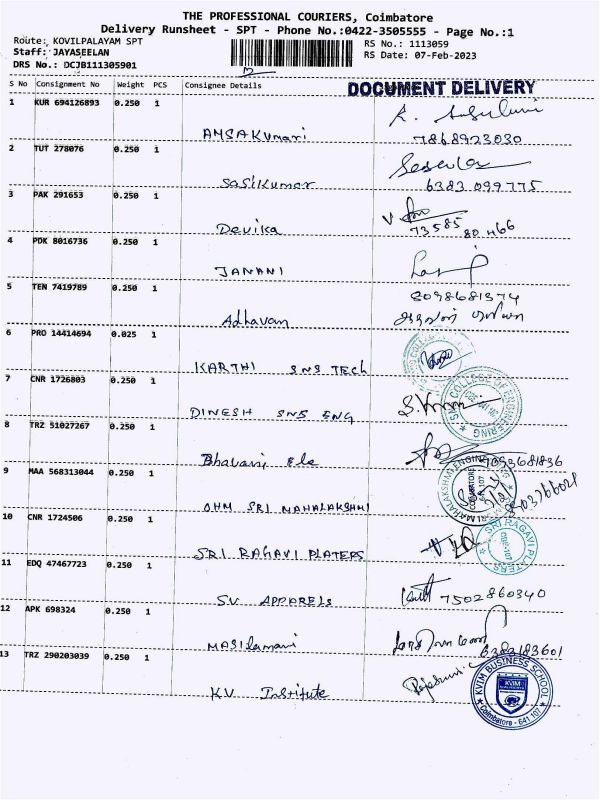 THE PROFESSIONAL COURIERS, Coimbatore
Delivery Runsheet - SPT - Phone No.:0422-3505555 - Page No.:1
Route: KOVILPALAYAM SPT
RS No.: 1113059
Staff: JAYASEELAN
RS Date: 07-Feb-2023
DRS No.: DCJB111305901
DOCUMENT DELIVERY
S No Consignment No Weight PCS Consignee Details
1 KUR 694126893 0.250 1
AMSAKumari 7868923030
2 TUT 278076 0.250 1
SasiKumar 6383 099775
3 PAK 291653 0.250 1
Devika 73585 80466
4 PDK 8016736 0.250 1
JANANI
5 TEN 7419789 0.250 1
8098681374
Adhavan
6 PRO 14414694 0.025 1
KARTHI SNS Tech
7 CNR 1726803 0.250 1
DINESH SNS ENG
SNS COLLEGE OF ENGINEERING
8 TRZ 51027267 0.250 1
Bhavani Ele 7093681836
9 MAA 568313044 0.250 1
OHM SRI MAHALAKSHMI
10 CNR 1724506 0.250 1
SRI RAGAVI PLATERS
SRI RAGAVI PLATERS
11 EDQ 47467723 0.250 1
SV APPARELS 7502860340
12 APK 698324 0.250 1
MASilamani 6383183601
13 TRZ 290203039 0.250 1
KV Institute
KVIM BUSINESS SCHOOL
KVIM
Coimbatore - 641 107